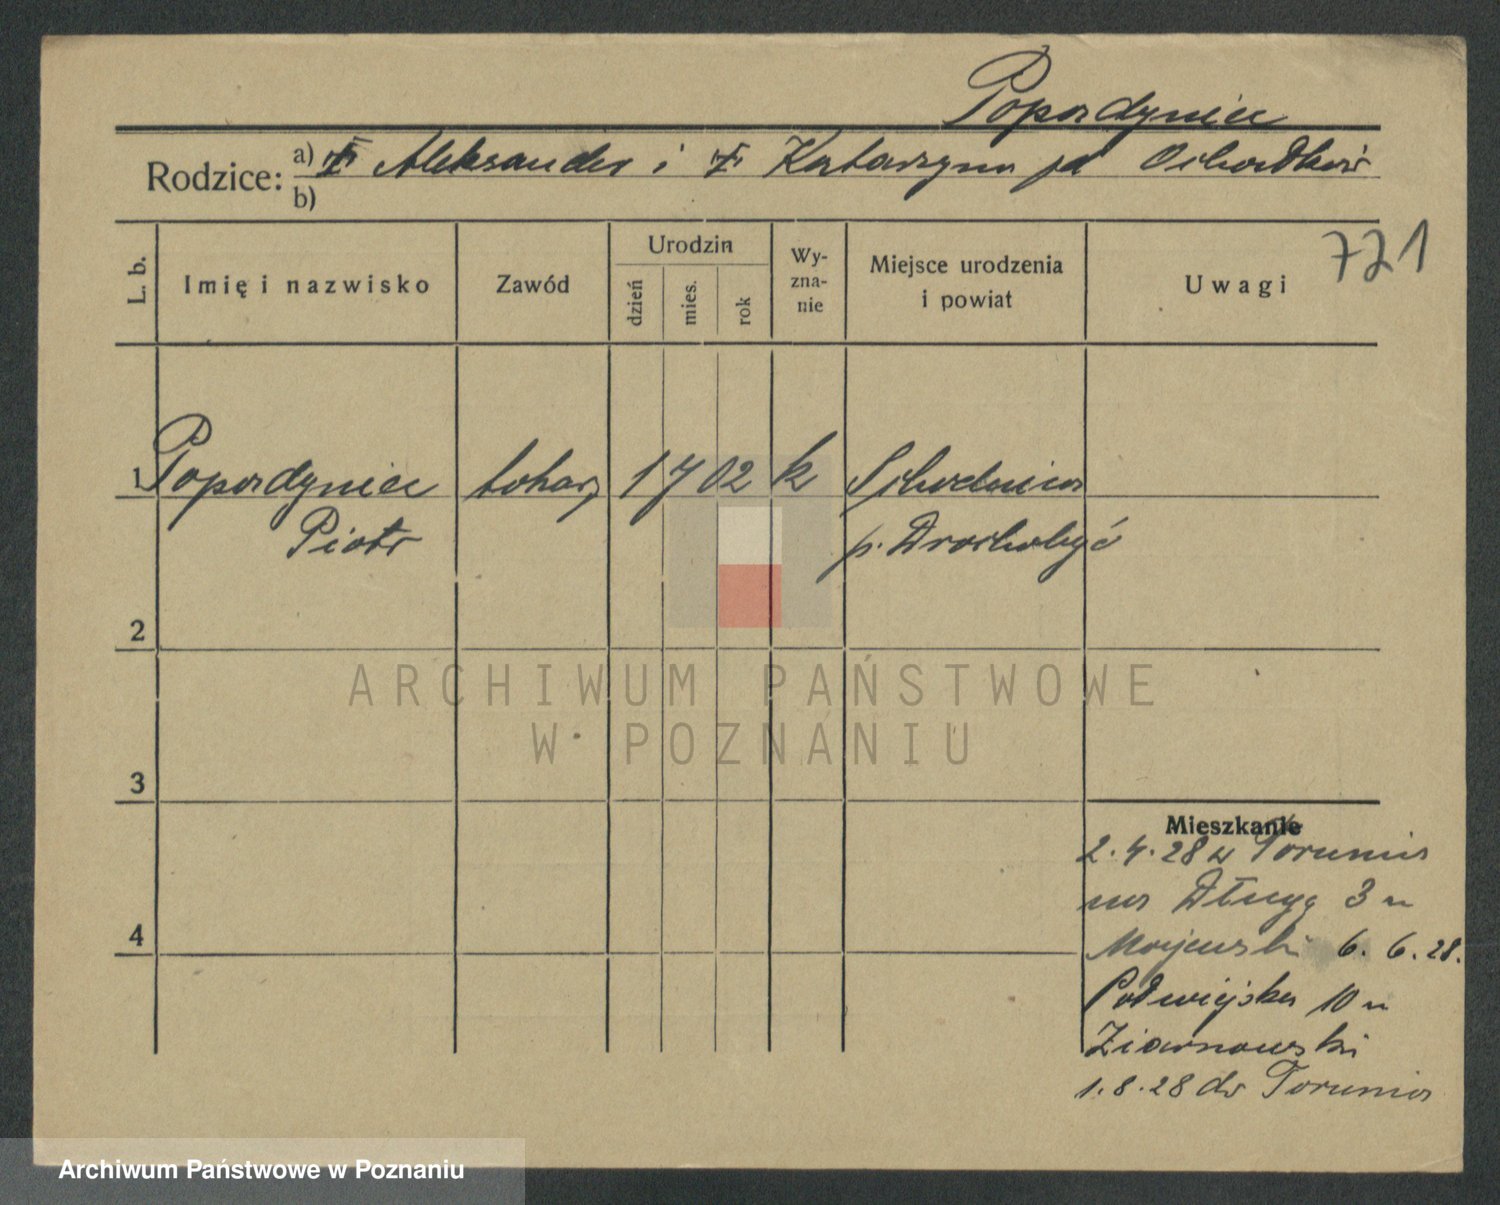 Popordyniec
Rodzice: a) ✝ Aleksander i ✝ Katarzyna
b)
721
L. b.
Imię i nazwisko
Zawód
Urodzin
dzień
mies.
rok
Wy-
zna-
nie
Miejsce urodzenia
i powiat
Uwagi
1 Popordyniec tokarz 1 7 02 k Schodnica
Piotr p. Drohobyć
2
3
4
ARCHIWUM PAŃSTWOWE
W POZNANIU
Mieszkanie
2.4.28 z Torunia
na Długą 3 u
Majewski 6.6.28.
Podwiejska 10 u
Ziarnowski
1.8.28 do Torunia
Archiwum Państwowe w Poznaniu